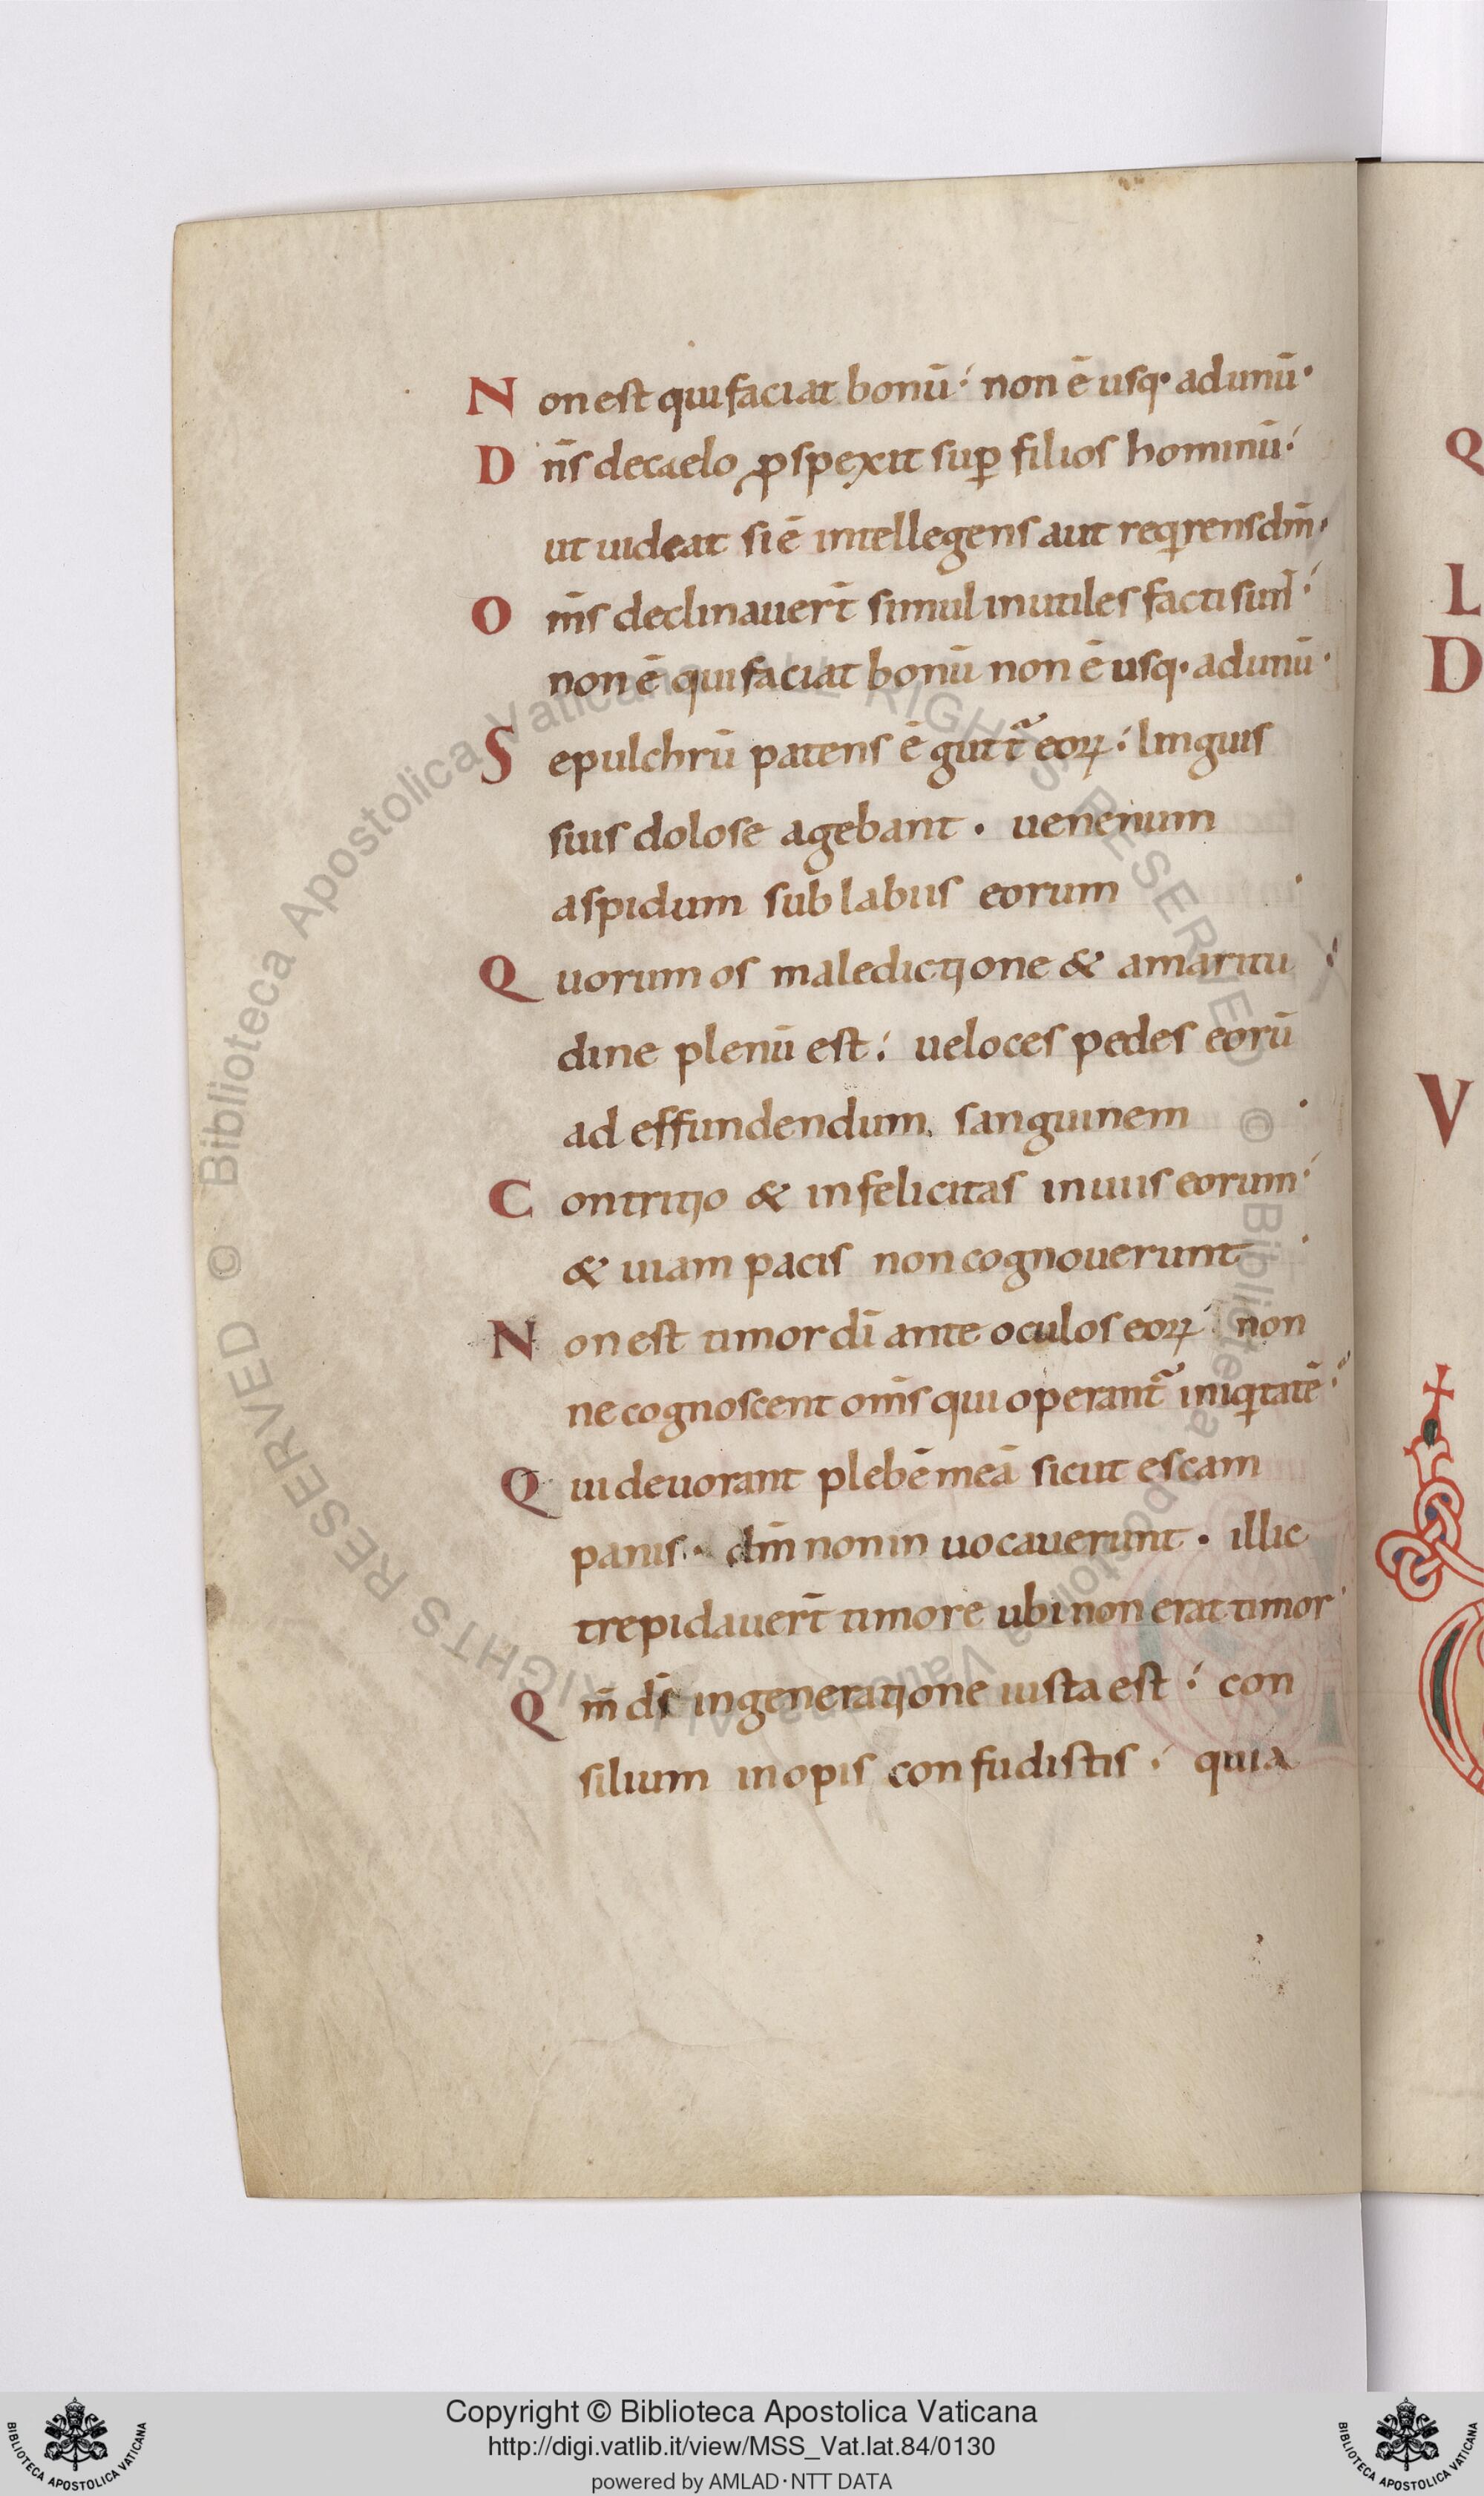 Non est qui faciat bonū: non ē usq· ad unū·
Dn̄s de caelo ꝓspexit sup̄ filios hominū:
ut uideat si ē intellegens aut reqrens dm̄·
Om̄s declinauer̄t simul inutiles facti sunt̄:
non ē qui faciat bonū non ē usq· ad unū·
Sepulchrū patens ē gutt̄ eoꝝ: linguis
suis dolose agebant · uenenum
aspidum sub labiis eorum ·
Quorum os maledictione & amaritu
dine plenū est: ueloces pedes eorū
ad effundendum sanguinem ·
Contritio & infelicitas in uiis eorum:
& uiam pacis non cognouerunt ·
Non est timor dī ante oculos eoꝝ: non
ne cognoscent om̄s qui operant̄ iniqtatē:
Qui deuorant plebē meā sicut escam
panis · dm̄ non inuocauerunt · illic
trepidauer̄t timore ubi non erat timor·
Qm̄ ds̄ in generatione iusta est: con
silium inopis confudistis: quia
Q
L
D
V
© Biblioteca Apostolica Vaticana ALL RIGHTS RESERVED © Biblioteca Apostolica Vaticana ALL RIGHTS RESERVED
Copyright © Biblioteca Apostolica Vaticana
http://digi.vatlib.it/view/MSS_Vat.lat.84/0130
powered by AMLAD·NTT DATA
BIBLIOTECA APOSTOLICA VATICANA
BIBLIOTECA APOSTOLICA VATICANA